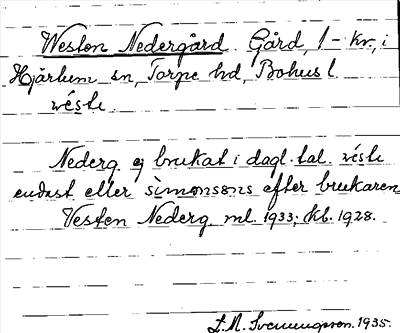 Westen Nedergård. Gård, 1 - kr., i
Hjärtum sn, Torpe hd, Bohusl.
véstɩ.
Nederg. ej brukat i dagl. tal. véstɩ
endast eller sìmonsons efter brukaren
Vesten Nederg. ml. 1933; kb. 1928.
S.A. Svenungsson. 1935.